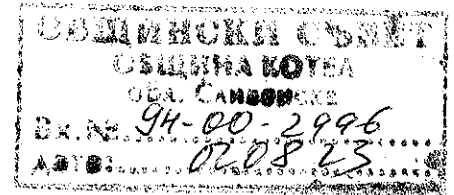 ОБЩИНСКИ СЪВЕТ
ОБЩИНА КОТЕЛ
ОБЛ. СЛИВЕНСКА
Вх.№ 94-00-2996
ДАТА: 02 08 23